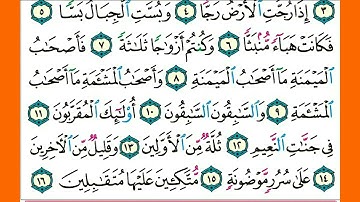 ٣ إِذَا رُجَّتِ الْأَرْضُ رَجًّا ٤ وَبُسَّتِ الْجِبَالُ بَسًّا ٥
فَكَانَتْ هَبَاءً مُّنْبَثًّا ٦ وَكُنْتُمْ أَزْوَاجًا ثَلَاثَةً ٧ فَأَصْحَابُ
الْمَيْمَنَةِ مَا أَصْحَابُ الْمَيْمَنَةِ ٨ وَأَصْحَابُ الْمَشْئَمَةِ مَا أَصْحَابُ
الْمَشْئَمَةِ ٩ وَالسَّابِقُونَ السَّابِقُونَ ١٠ أُولَٰئِكَ الْمُقَرَّبُونَ ١١
فِي جَنَّاتِ النَّعِيمِ ١٢ ثُلَّةٌ مِّنَ الْأَوَّلِينَ ١٣ وَقَلِيلٌ مِّنَ الْآخِرِينَ
١٤ عَلَىٰ سُرُرٍ مَّوْضُونَةٍ ١٥ مُتَّكِئِينَ عَلَيْهَا مُتَقَابِلِينَ ١٦